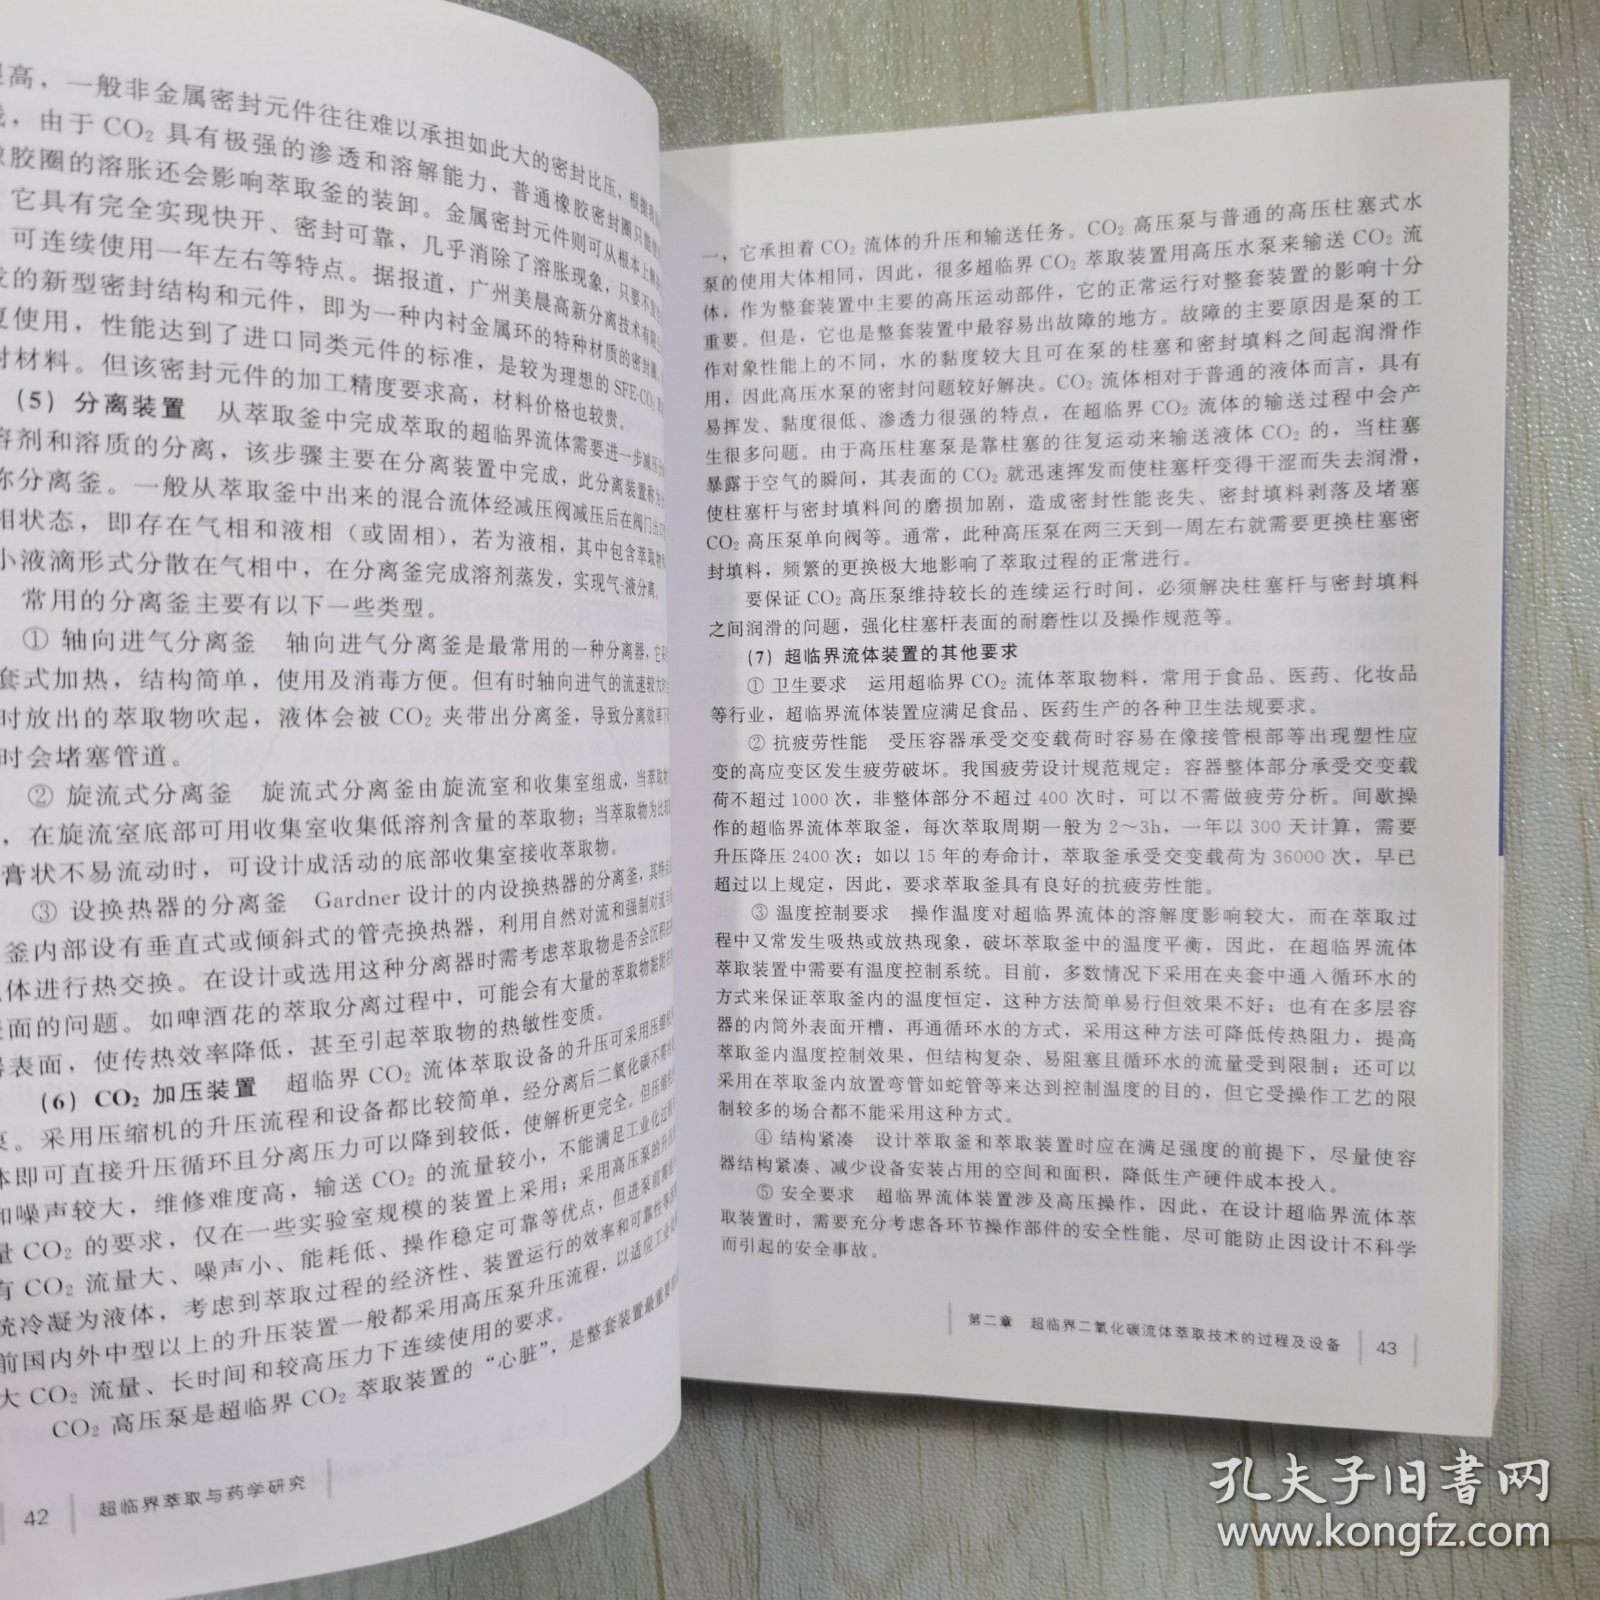 高，一般非金属密封元件往往难以承担如此大的密封比压，根据
，由于 CO₂ 具有极强的渗透和溶解能力，普通橡胶密封圈只能
胶圈的溶胀还会影响萃取釜的装卸。金属密封元件则可从根本上
它具有完全实现快开、密封可靠，几乎消除了溶胀现象，只要不
可连续使用一年左右等特点。据报道，广州美晨高新分离技术有限
的新型密封结构和元件，即为一种内衬金属环的特种材质的密封圈，
复使用，性能达到了进口同类元件的标准，是较为理想的 SFE-CO₂
封材料。但该密封元件的加工精度要求高，材料价格也较贵。
（5）分离装置　从萃取釜中完成萃取的超临界流体需要进一步减压
溶剂和溶质的分离，该步骤主要在分离装置中完成，此分离装置称为
称分离釜。一般从萃取釜中出来的混合流体经减压阀减压后在阀门出
相状态，即存在气相和液相（或固相），若为液相，其中包含萃取物
小液滴形式分散在气相中，在分离釜完成溶剂蒸发，实现气-液分离。
常用的分离釜主要有以下一些类型。
① 轴向进气分离釜　轴向进气分离釜是最常用的一种分离器，它
套式加热，结构简单，使用及消毒方便。但有时轴向进气的流速较大
时放出的萃取物吹起，液体会被 CO₂ 夹带出分离釜，导致分离效率下
时会堵塞管道。
② 旋流式分离釜　旋流式分离釜由旋流室和收集室组成，当萃取物
，在旋流室底部可用收集室收集低溶剂含量的萃取物；当萃取物为比较
膏状不易流动时，可设计成活动的底部收集室接收萃取物。
③ 设换热器的分离釜　Gardner 设计的内设换热器的分离釜，其特点
釜内部设有垂直式或倾斜式的管壳换热器，利用自然对流和强制对流
体进行热交换。在设计或选用这种分离器时需考虑萃取物是否会沉积
面的问题。如啤酒花的萃取分离过程中，可能会有大量的萃取物黏附
器表面，使传热效率降低，甚至引起萃取物的热敏性变质。
（6）CO₂ 加压装置　超临界 CO₂ 流体萃取设备的升压可采用压缩机
泵。采用压缩机的升压流程和设备都比较简单，经分离后二氧化碳不需
体即可直接升压循环且分离压力可以降到较低，使解析更完全。但压缩机
和噪声较大，维修难度高，输送 CO₂ 的流量较小，不能满足工业化过程
量 CO₂ 的要求，仅在一些实验室规模的装置上采用；采用高压泵的升压
有 CO₂ 流量大、噪声小、能耗低、操作稳定可靠等优点，但进泵前需
统冷凝为液体，考虑到萃取过程的经济性、装置运行的效率和可靠性等
前国内外中型以上的升压装置一般都采用高压泵升压流程，以适应工业化
大 CO₂ 流量、长时间和较高压力下连续使用的要求。
CO₂ 高压泵是超临界 CO₂ 萃取装置的“心脏”，是整套装置最重要的
42
超临界萃取与药学研究
一，它承担着 CO₂ 流体的升压和输送任务。CO₂ 高压泵与普通的高压柱塞式水
泵的使用大体相同，因此，很多超临界 CO₂ 萃取装置用高压水泵来输送 CO₂ 流
体，作为整套装置中主要的高压运动部件，它的正常运行对整套装置的影响十分
重要。但是，它也是整套装置中最容易出故障的地方。故障的主要原因是泵的工
作对象性能上的不同，水的黏度较大且可在泵的柱塞和密封填料之间起润滑作
用，因此高压水泵的密封问题较好解决。CO₂ 流体相对于普通的液体而言，具有
易挥发、黏度很低、渗透力很强的特点，在超临界 CO₂ 流体的输送过程中会产
生很多问题。由于高压柱塞泵是靠柱塞的往复运动来输送液体 CO₂ 的，当柱塞
暴露于空气的瞬间，其表面的 CO₂ 就迅速挥发而使柱塞杆变得干涩而失去润滑，
使柱塞杆与密封填料间的磨损加剧，造成密封性能丧失、密封填料剥落及堵塞
CO₂ 高压泵单向阀等。通常，此种高压泵在两三天到一周左右就需要更换柱塞密
封填料，频繁的更换极大地影响了萃取过程的正常进行。
要保证 CO₂ 高压泵维持较长的连续运行时间，必须解决柱塞杆与密封填料
之间润滑的问题，强化柱塞杆表面的耐磨性以及操作规范等。
（7）超临界流体装置的其他要求
① 卫生要求　运用超临界 CO₂ 流体萃取物料，常用于食品、医药、化妆品
等行业，超临界流体装置应满足食品、医药生产的各种卫生法规要求。
② 抗疲劳性能　受压容器承受交变载荷时容易在像接管根部等出现塑性应
变的高应变区发生疲劳破坏。我国疲劳设计规范规定：容器整体部分承受交变载
荷不超过 1000 次，非整体部分不超过 400 次时，可以不需做疲劳分析。间歇操
作的超临界流体萃取釜，每次萃取周期一般为 2～3h，一年以 300 天计算，需要
升压降压 2400 次；如以 15 年的寿命计，萃取釜承受交变载荷为 36000 次，早已
超过以上规定，因此，要求萃取釜具有良好的抗疲劳性能。
③ 温度控制要求　操作温度对超临界流体的溶解度影响较大，而在萃取过
程中又常发生吸热或放热现象，破坏萃取釜中的温度平衡，因此，在超临界流体
萃取装置中需要有温度控制系统。目前，多数情况下采用在夹套中通入循环水的
方式来保证萃取釜内的温度恒定，这种方法简单易行但效果不好；也有在多层容
器的内筒外表面开槽，再通循环水的方式，采用这种方法可降低传热阻力，提高
萃取釜内温度控制效果，但结构复杂、易阻塞且循环水的流量受到限制；还可以
采用在萃取釜内放置弯管如蛇管等来达到控制温度的目的，但它受操作工艺的限
制较多的场合都不能采用这种方式。
④ 结构紧凑　设计萃取釜和萃取装置时应在满足强度的前提下，尽量使容
器结构紧凑、减少设备安装占用的空间和面积，降低生产硬件成本投入。
⑤ 安全要求　超临界流体装置涉及高压操作，因此，在设计超临界流体萃
取装置时，需要充分考虑各环节操作部件的安全性能，尽可能防止因设计不科学
而引起的安全事故。
第二章　超临界二氧化碳流体萃取技术的过程及设备　43
孔夫子旧书网
www.kongfz.com